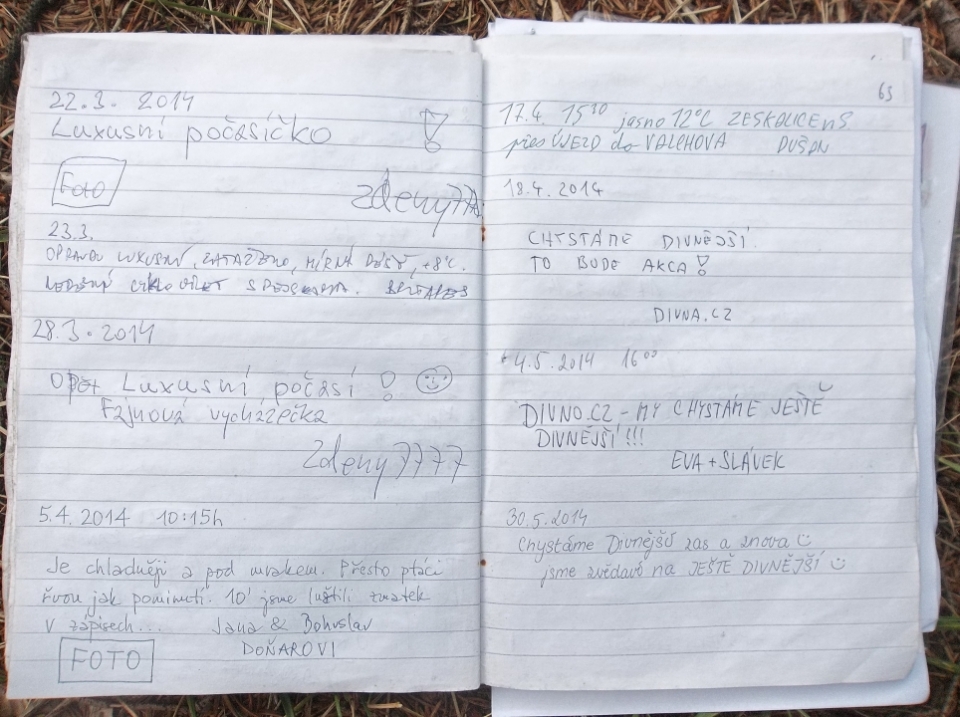 22.3. 2014
Luxusní počasíčko !
Foto
zdeny777
23.3.
OPRAVDU LUXUSNÍ, ZATAŽENO, MÍRNÝ DÉŠŤ, +8°C.
VÝLET S
28.3. 2014
Opět Luxusní počasí ! ☺
Fajnová vycházečka
Zdeny7777
5.4. 2014 10:15h
Je chladněji a pod mrakem. Přesto ptáci
řvou jak pominutí. 10' jsme luštili zmatek
v zápisech... Jana & Bohuslav
DOŇAROVI
FOTO
63
17.4. 15³⁰ jasno 12°C ZE SKALICE n S
přes ÚJEZD do VALCHOVA DUŠAN
18.4. 2014
CHYSTÁME DIVNĚJŠÍ.
TO BUDE AKCA!
DIVNA.CZ
4.5. 2014 16⁰⁰
DIVNO.CZ - MY CHYSTÁME JEŠTĚ
DIVNĚJŠÍ!!!
EVA + SLÁVEK
30.5.2014
Chystáme Divnější zas a znova ☺
jsme zvědavi na JEŠTĚ DIVNĚJŠÍ ☺